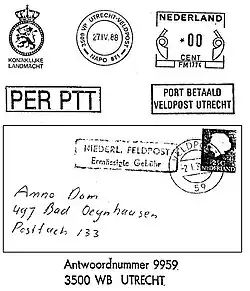 NEDERLAND
3500 WB UTRECHT-VELDPOST
27.IV.88
NAPO 811
*00
CENT
FM 1774
KONINKLIJKE
LANDMACHT
PER PTT
PORT BETAALD
VELDPOST UTRECHT
NIEDERL. FELDPOST
Ermässigte Gebühr
VELDPOST
59
NEDERLAND
Anno Dom
497 Bad Oeynhausen
Postfach 133
Antwoordnummer 9959
3500 WB UTRECHT